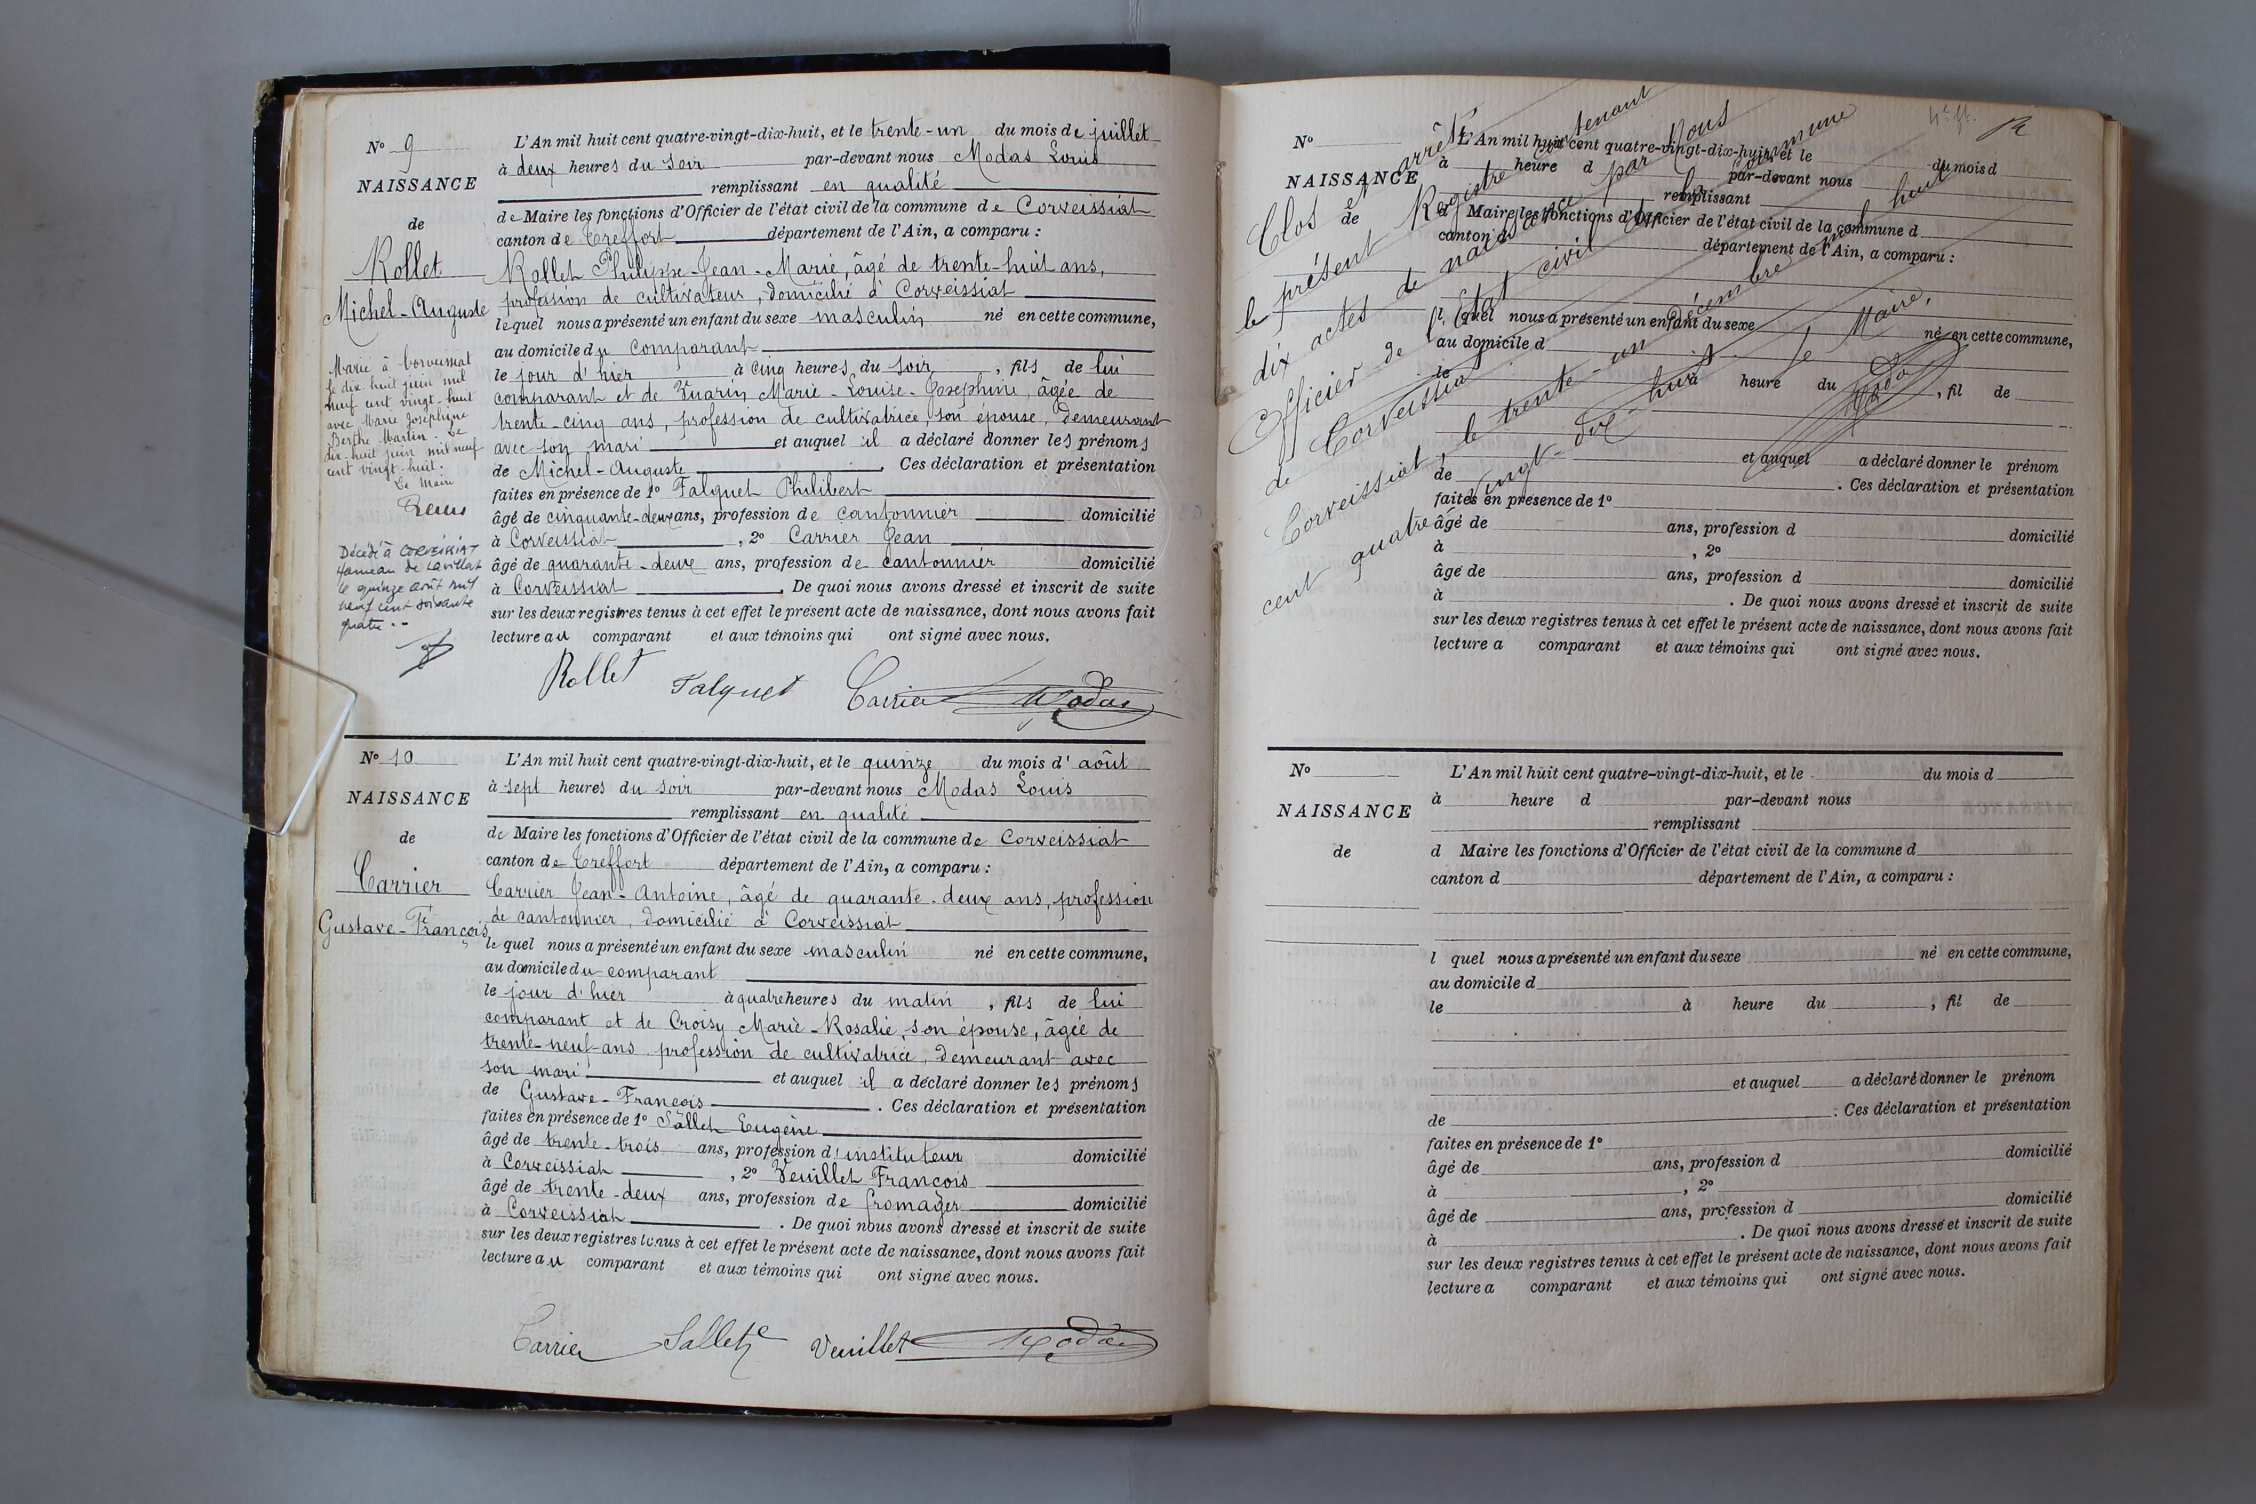 N° 9
NAISSANCE
de
Rollet
Michel-Auguste
Marié à Corveissiat
le dix huit juin mil
neuf cent vingt-huit
avec Marie Joséphine
Berthe Martin. Le
dix-huit juin mil neuf
cent vingt-huit.
Le Maire
Décédé à CORVEISSIAT
Hameau de Lavillat
le quinze août mil
neuf cent soixante
quatre.-
L'An mil huit cent quatre-vingt-dix-huit, et le trente-un du mois de juillet
à deux heures du soir par-devant nous Modas Louis
remplissant en qualité
de Maire les fonctions d'Officier de l'état civil de la commune de Corveissiat
canton de Treffort département de l'Ain, a comparu :
Rollet Philippe-Jean-Marie, âgé de trente-huit ans,
profession de cultivateur, domicilié à Corveissiat
lequel nous a présenté un enfant du sexe masculin né en cette commune,
au domicile du comparant
le jour d'hier à cinq heures du soir, fils de lui
comparant et de Marie-Louise-Joséphine, âgée de
trente-cinq ans, profession de cultivatrice, son épouse, demeurant
avec son mari et auquel il a déclaré donner les prénoms
de Michel-Auguste. Ces déclaration et présentation
faites en présence de 1° Falquet Philibert
âgé de cinquante-deux ans, profession de cantonnier domicilié
à Corveissiat, 2° Carrier Jean
âgé de quarante-deux ans, profession de cantonnier domicilié
à Corveissiat. De quoi nous avons dressé et inscrit de suite
sur les deux registres tenus à cet effet le présent acte de naissance, dont nous avons fait
lecture au comparant et aux témoins qui ont signé avec nous.
Rollet Falquet Carrier Modas
N° 10
NAISSANCE
de
Carrier
Gustave-François
L'An mil huit cent quatre-vingt-dix-huit, et le quinze du mois d'août
à sept heures du soir par-devant nous Modas Louis
remplissant en qualité
de Maire les fonctions d'Officier de l'état civil de la commune de Corveissiat
canton de Treffort département de l'Ain, a comparu :
Carrier Jean-Antoine, âgé de quarante-deux ans, profession
de cantonnier, domicilié à Corveissiat
lequel nous a présenté un enfant du sexe masculin né en cette commune,
au domicile du comparant
le jour d'hier à quatre heures du matin, fils de lui
comparant et de Croisy Marie-Rosalie, son épouse, âgée de
trente-neuf ans profession de cultivatrice, demeurant avec
son mari et auquel il a déclaré donner les prénoms
de Gustave-François. Ces déclaration et présentation
faites en présence de 1° Sallet Eugène
âgé de trente-trois ans, profession d'instituteur domicilié
à Corveissiat, 2° Veuillet François
âgé de trente-deux ans, profession de fromager domicilié
à Corveissiat. De quoi nous avons dressé et inscrit de suite
sur les deux registres tenus à cet effet le présent acte de naissance, dont nous avons fait
lecture au comparant et aux témoins qui ont signé avec nous.
Carrier Sallet Veuillet Modas
Clos et arrêté
le présent Registre contenant
dix actes de naissance par Nous
Officier de l'Etat civil de la commune
de Corveissiat
Corveissiat, le trente-un Décembre mil huit
cent quatre vingt-dix-huit. Le Maire,
Modas
N°
NAISSANCE
de
L'An mil huit cent quatre-vingt-dix-huit, et le du mois d
à heure d par-devant nous
remplissant
d Maire les fonctions d'Officier de l'état civil de la commune d
canton d département de l'Ain, a comparu :
l quel nous a présenté un enfant du sexe né en cette commune,
au domicile d
le à heure du , fil de
et auquel a déclaré donner le prénom
de . Ces déclaration et présentation
faites en présence de 1°
âgé de ans, profession d domicilié
à , 2°
âgé de ans, profession d domicilié
à . De quoi nous avons dressé et inscrit de suite
sur les deux registres tenus à cet effet le présent acte de naissance, dont nous avons fait
lecture a comparant et aux témoins qui ont signé avec nous.
N°
NAISSANCE
de
L'An mil huit cent quatre-vingt-dix-huit, et le du mois d
à heure d par-devant nous
remplissant
d Maire les fonctions d'Officier de l'état civil de la commune d
canton d département de l'Ain, a comparu :
l quel nous a présenté un enfant du sexe né en cette commune,
au domicile d
le à heure du , fil de
et auquel a déclaré donner le prénom
de . Ces déclaration et présentation
faites en présence de 1°
âgé de ans, profession d domicilié
à , 2°
âgé de ans, profession d domicilié
à . De quoi nous avons dressé et inscrit de suite
sur les deux registres tenus à cet effet le présent acte de naissance, dont nous avons fait
lecture a comparant et aux témoins qui ont signé avec nous.